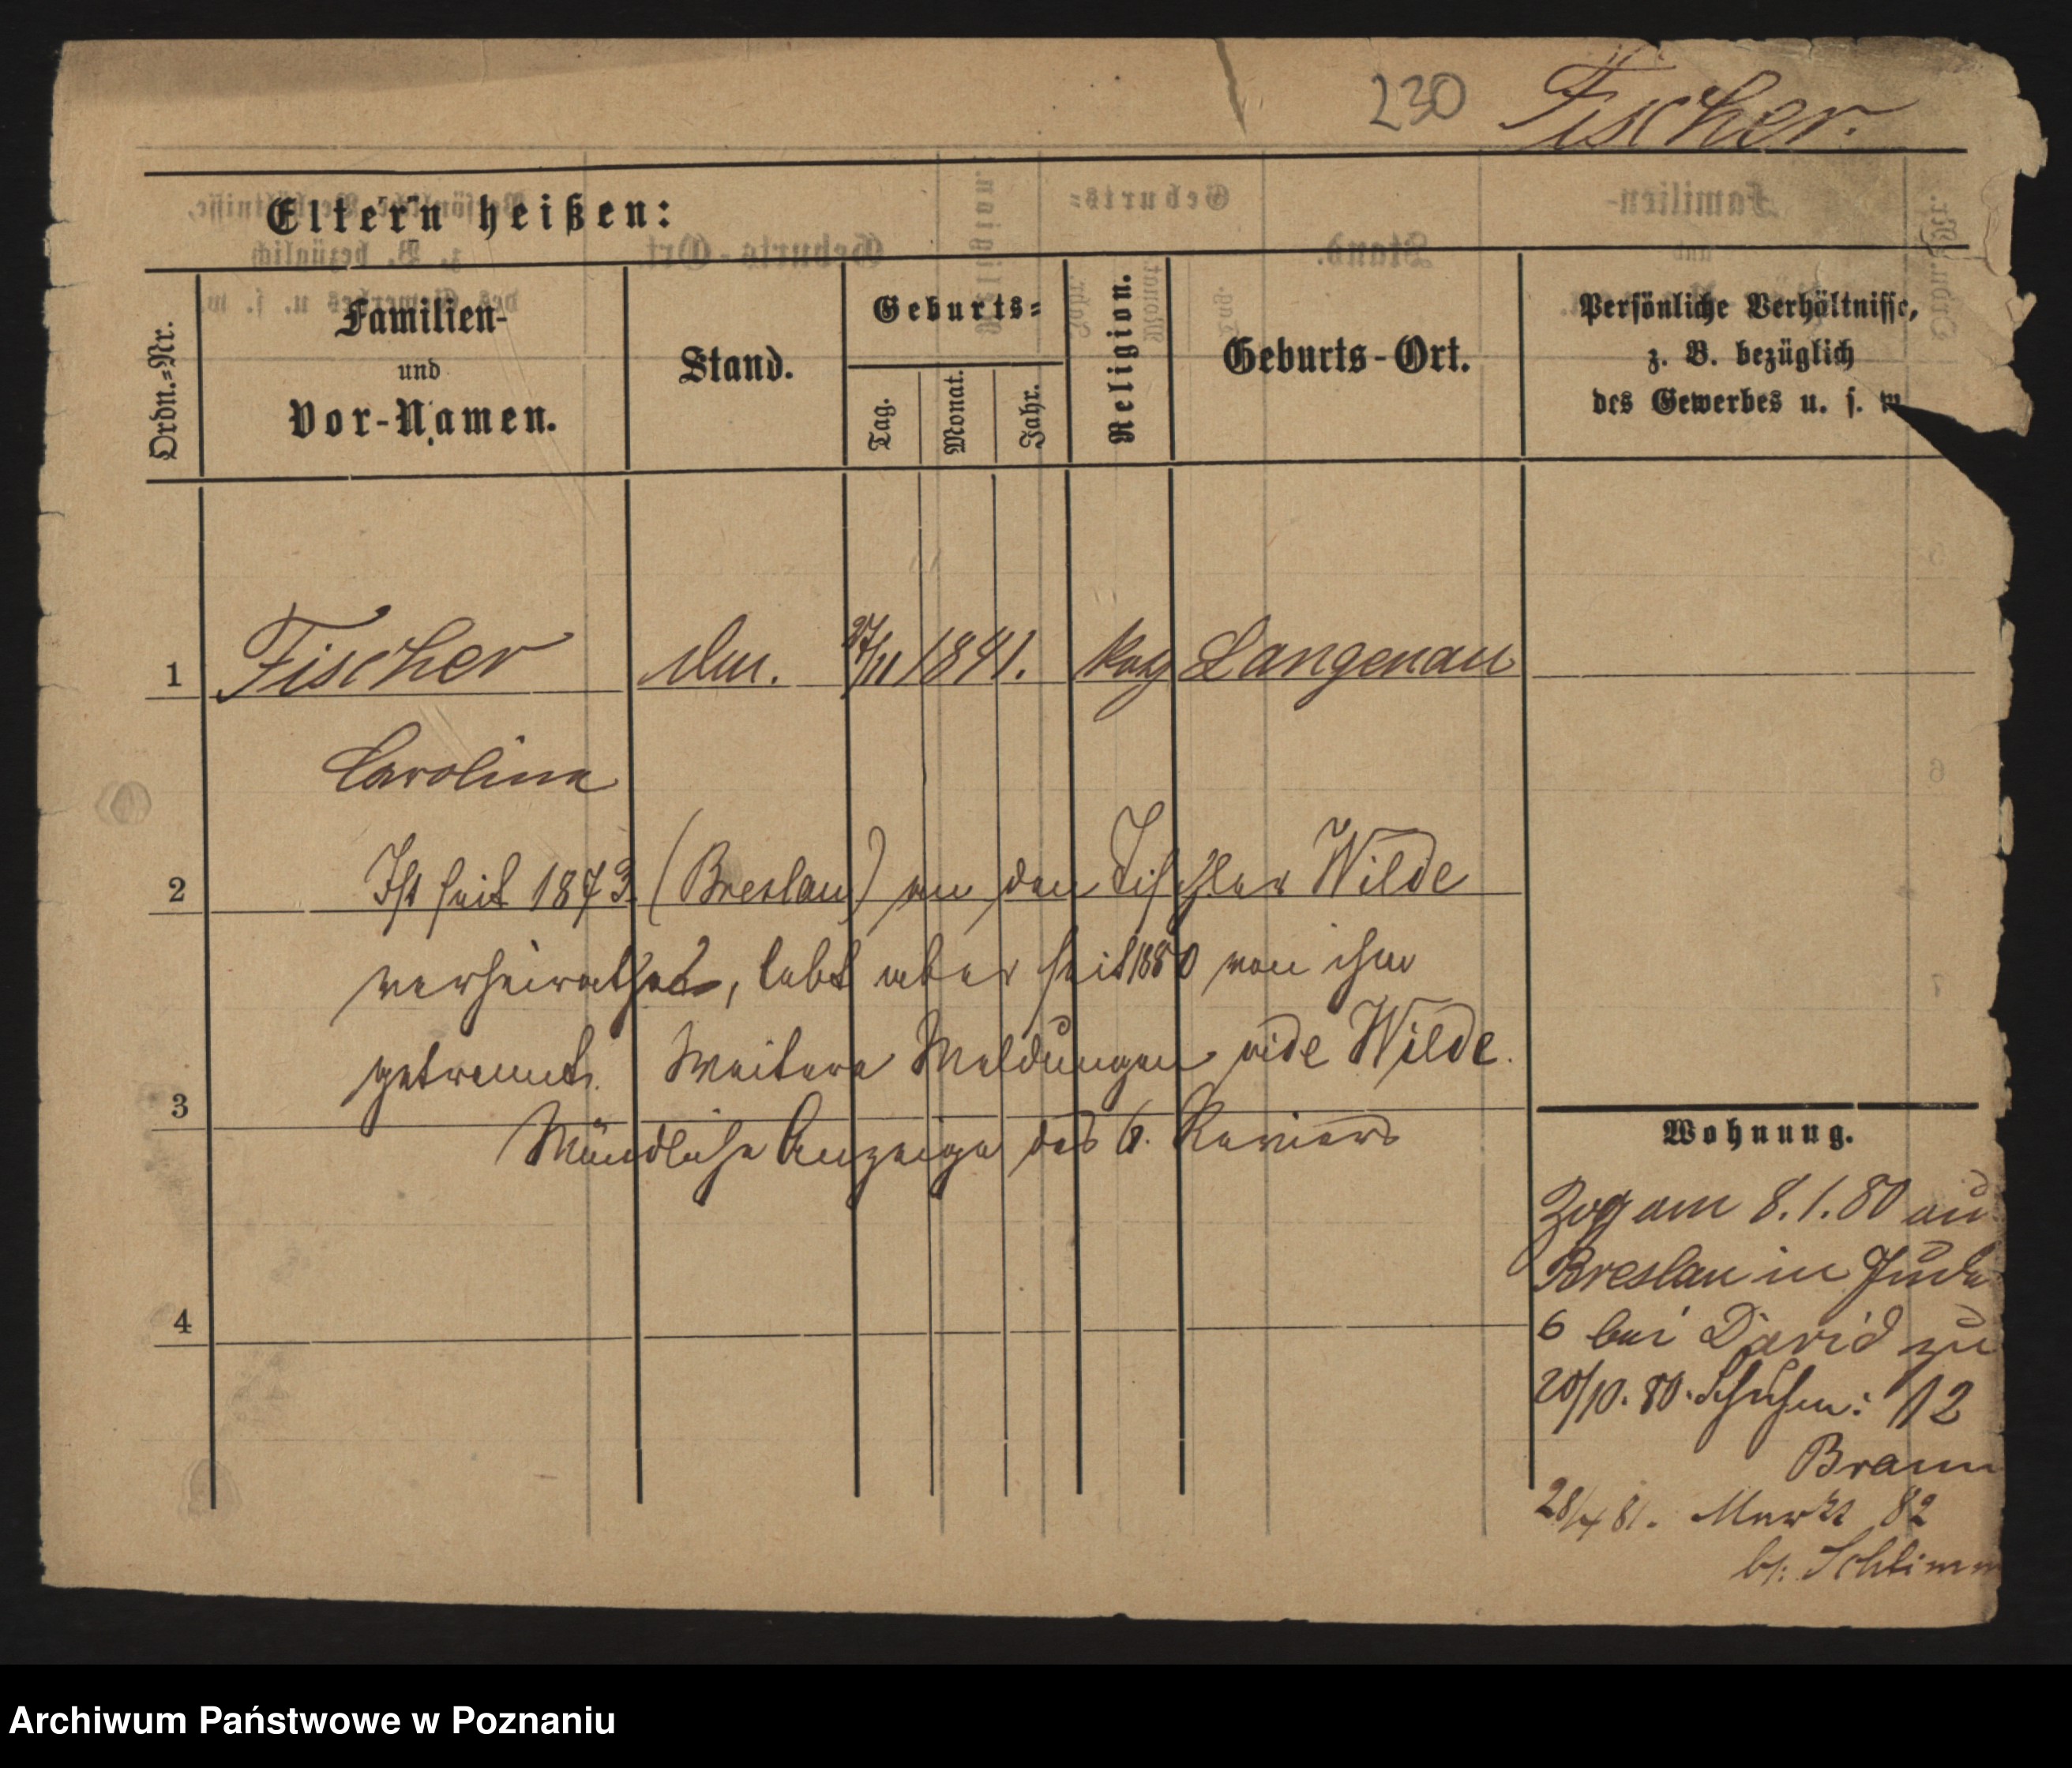 230 Fischer.
Eltern heißen:
Ordn.=Nr.
Familien-
und
Vor-Namen.
Stand.
Geburts=
Tag.
Monat.
Jahr.
Religion.
Geburts-Ort.
Persönliche Verhältnisse,
z. B. bezüglich
des Gewerbes u. s. w
1 Fischer 27/11 1841. kath Langenau
Carolina
2 Ist seit 1873. (Breslau) an den Tischler Wilde
verheirathet, lebt aber seit 1880 von ihm
getrennt. Weitere Meldungen vide Wilde.
3
Mündliche Anzeige des 6. Reviers
4
Wohnung.
Zog am 8.1.80 au
Breslau in Jude
6 bei David zu
20/10. 80. 12
Braun
28/4 81. Markt 82
b/. Schlimm
Archiwum Państwowe w Poznaniu